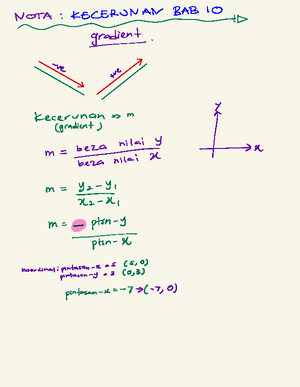 NOTA : KECERUNAN BAB 10
gradient.
-ve
+ve
Kecerunan ⇒ m
(gradient)
y
x
m = beza nilai y
beza nilai x
m = y₂ - y₁
x₂ - x₁
m = - ptsn-y
ptsn-x
koordinat: pintasan-x = 5 (5, 0)
pintasan-y = 3 (0, 3)
pintasan-x = -7 → (-7, 0)